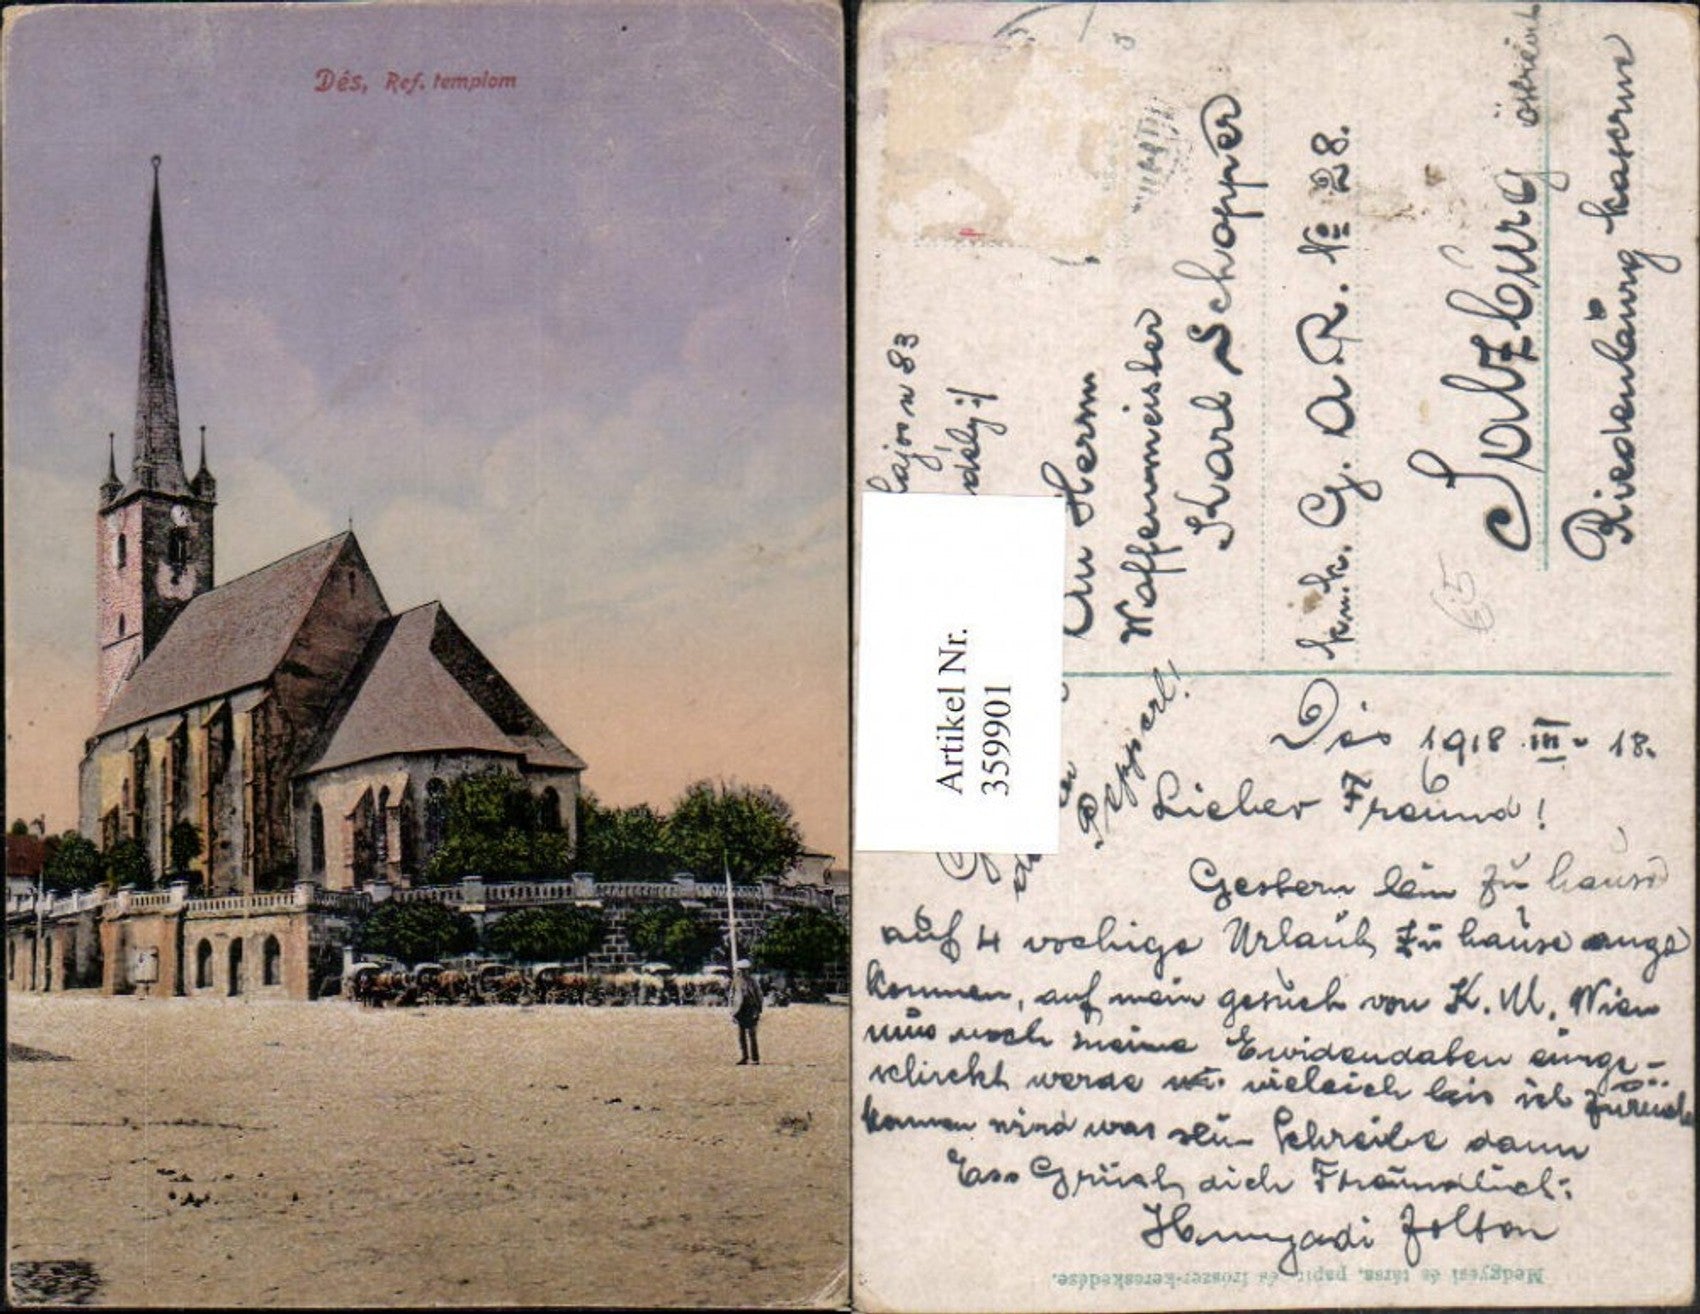 Dés, Ref. templom
Lajos u 83
An Herrn
Waffenmeister
Karl Schopper
k.u.k. G. A. R. № 28.
Salzburg
Riedenburg kaserne
Artikel Nr.
359901
Pepperl!
Dés 1918 III - 18.
Lieber Freund!
Gestern bin zu hause
auf 4 wochige Urlaub zu hause ange
kommen, auf mein gesuch von K. M. Wien
mus noch meine Evidendaben einge-
schickt werde vieleich bis ich zuruck
kommen wird was sein Schreibe dann
Es Grüsst dich Freundlich:
Hunyadi Zoltan
Medgyesi és társa, papir- és irószer-kereskedése.